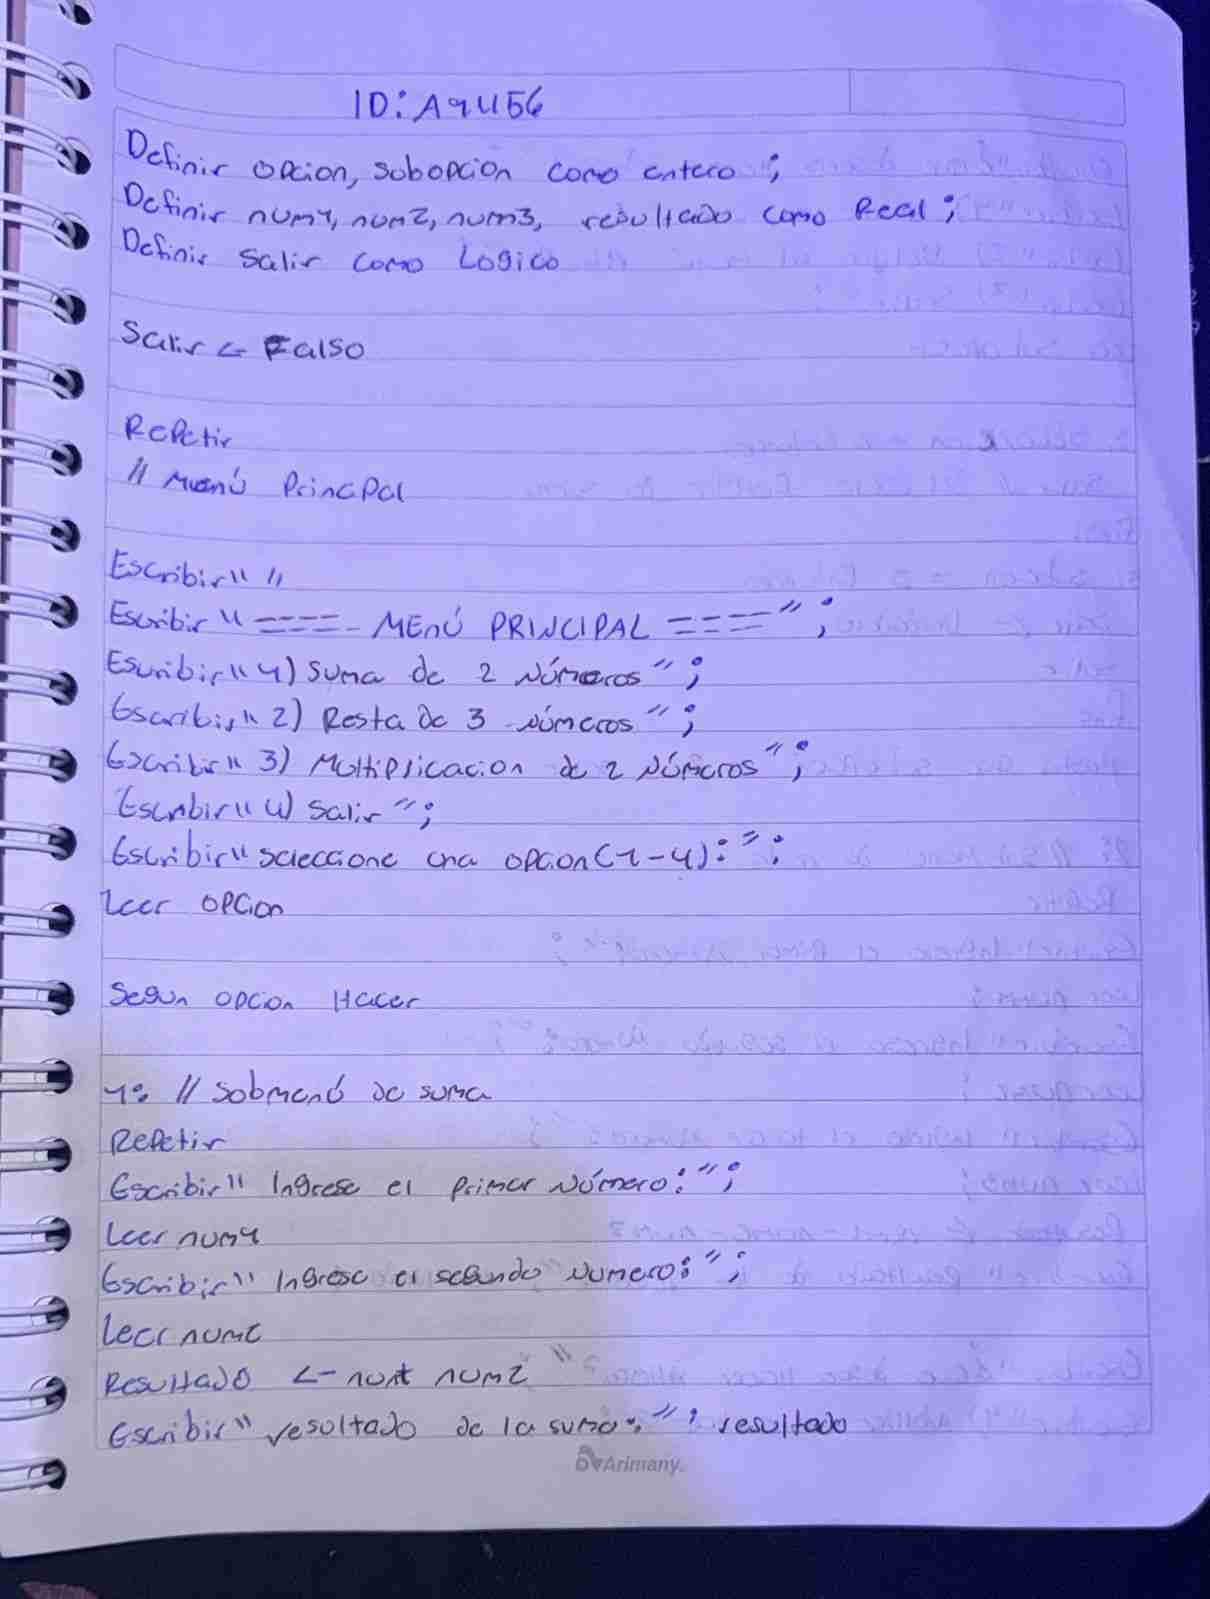 ID: A9U56
Definir opcion, subopcion como entero ;
Definir num1, num2, num3, resultado como Real ;
Definir Salir como Logico
Salir <- Falso
Repetir
// Menú Princpal
Escribir " "
Escribir " ====- MENÚ PRINCIPAL ==== " ;
Escribir " 1) Suma de 2 Números " ;
Escribir " 2) Resta de 3 Números " ;
Escribir " 3) Multiplicacion de 2 Números " ;
Escribir " 4) Salir " ;
Escribir " seleccione una opcion (1-4): " :
Leer opcion
Segun opcion Hacer
1: // Submenú de suma
Repetir
Escribir " Ingrese el primer Número: " ;
Leer num1
Escribir " Ingrese el segundo Numero: " ;
Leer num2
Resultado <- num2
Escribir " resultado de la suma: " ; resultado
Arimany.